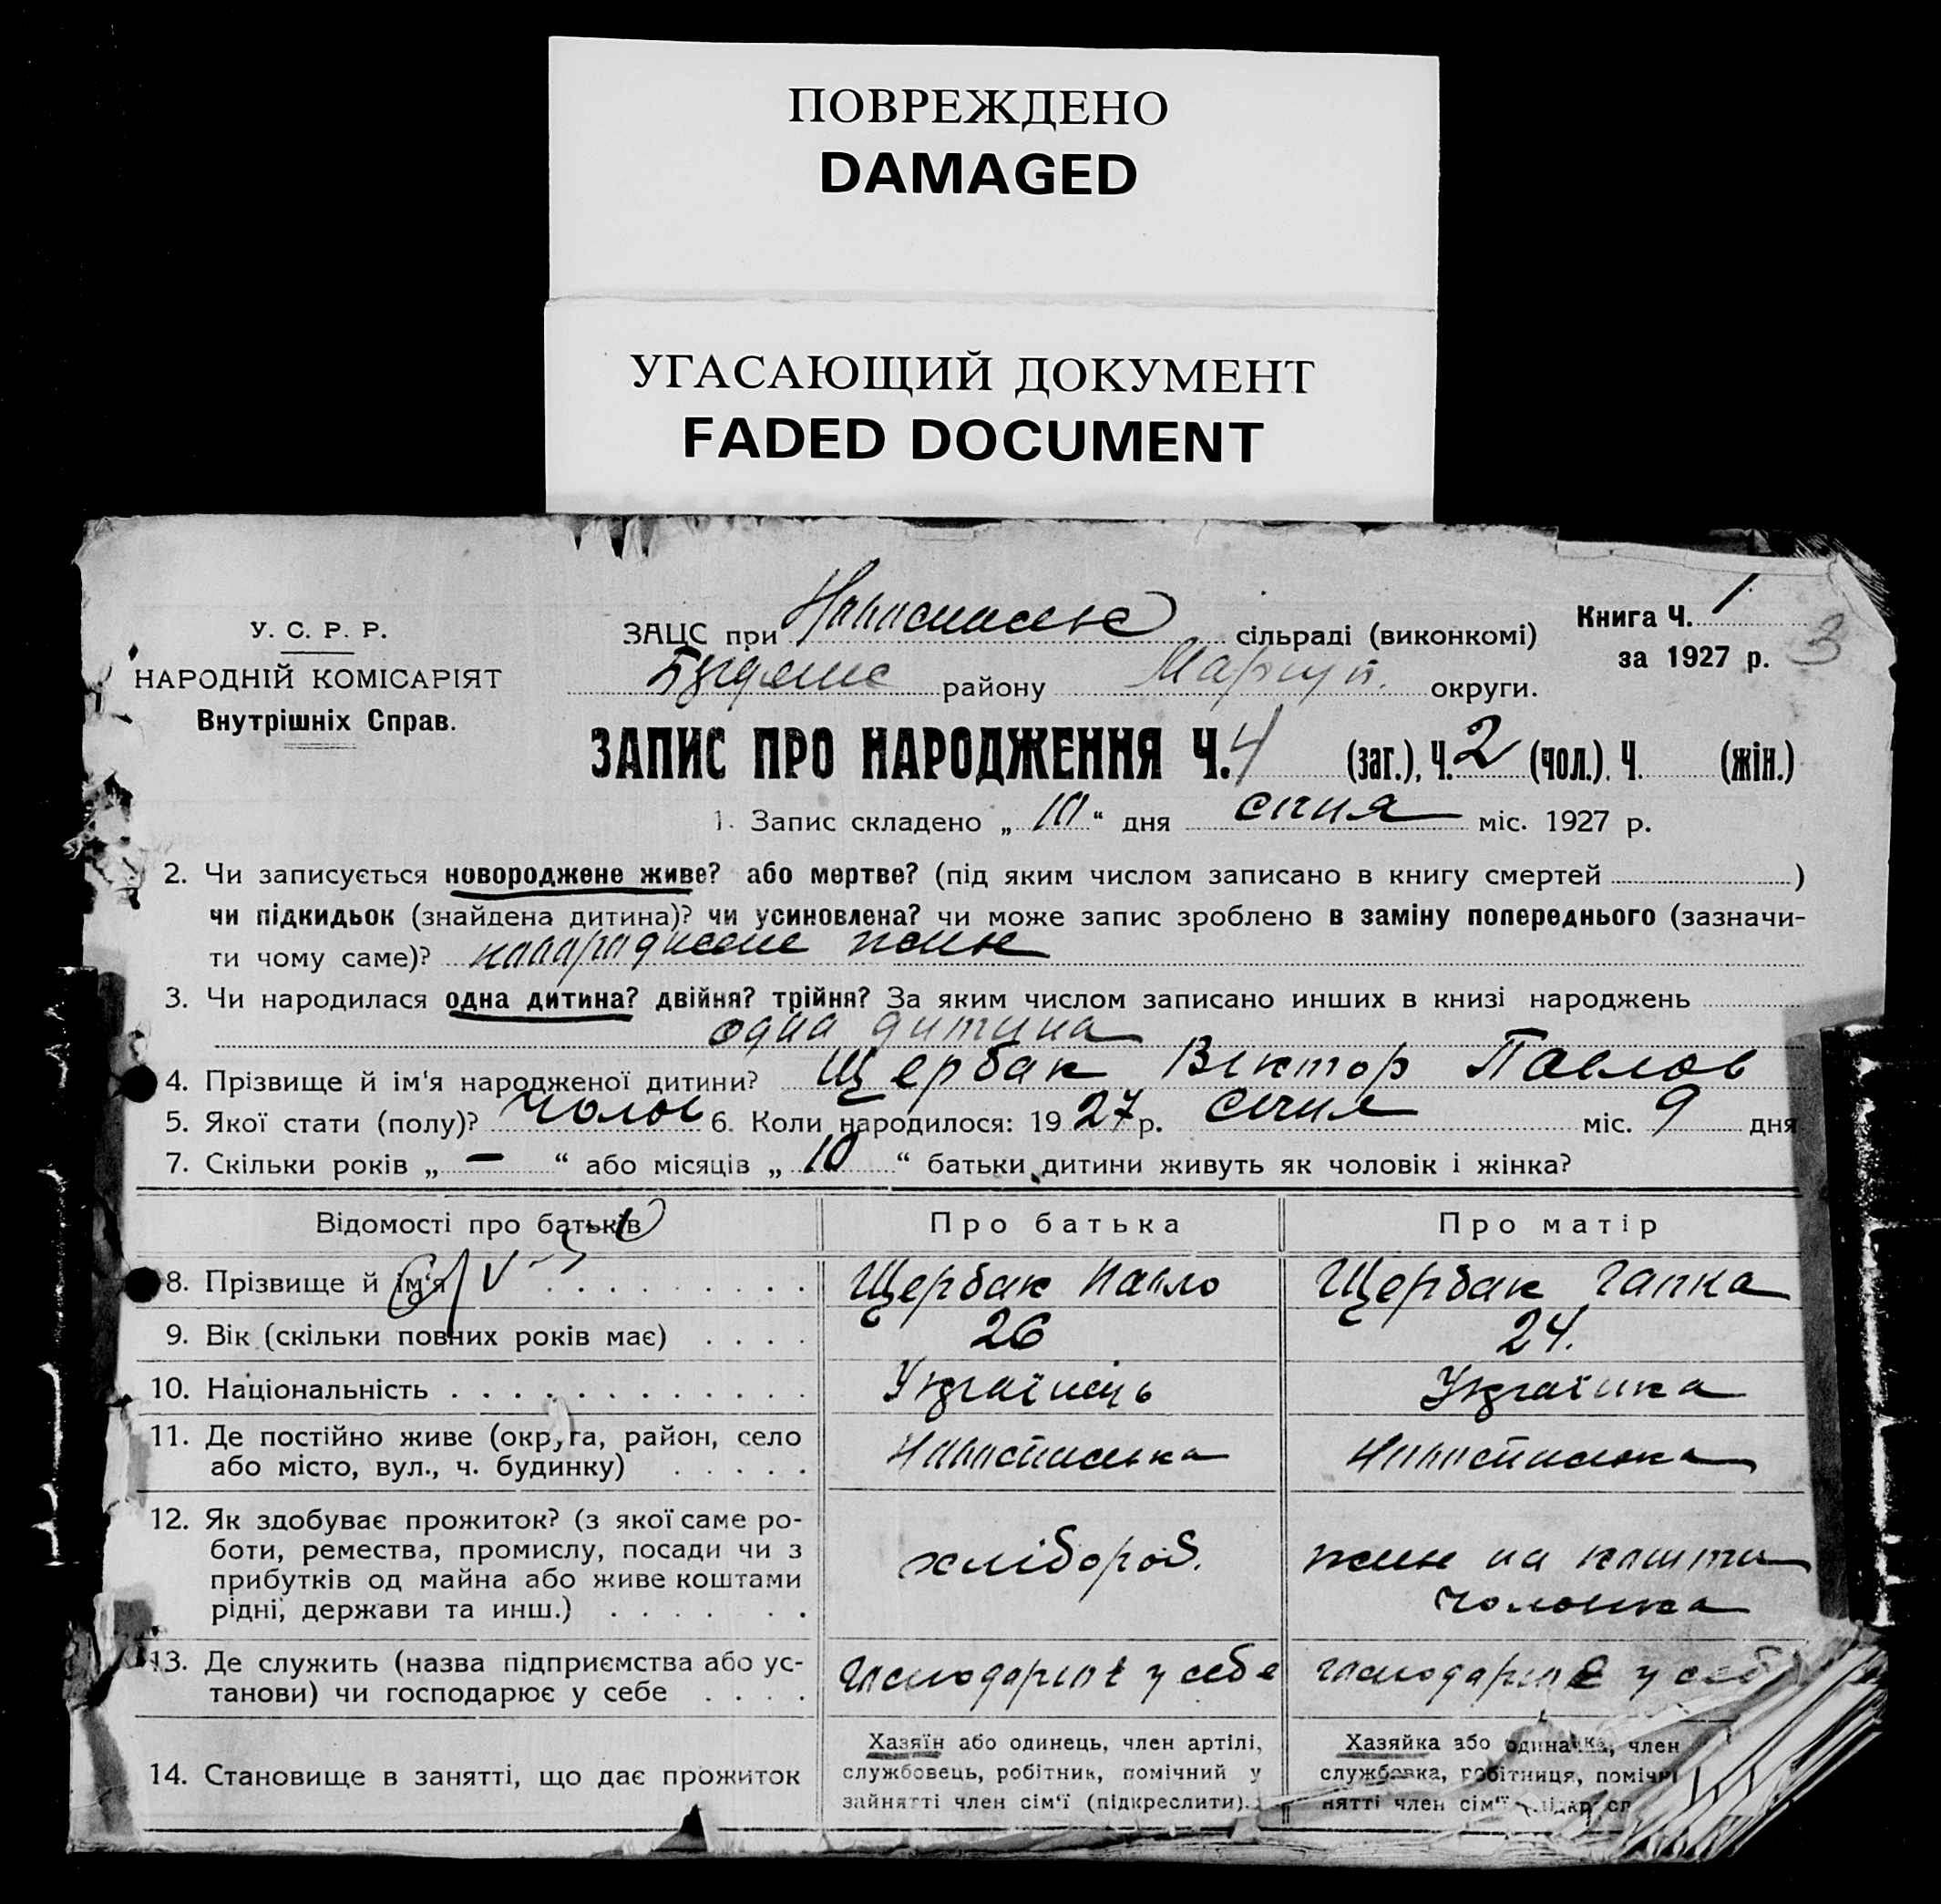 ПОВРЕЖДЕНО
DAMAGED
УГАСАЮЩИЙ ДОКУМЕНТ
FADED DOCUMENT
У. С. Р. Р.
НАРОДНІЙ КОМІСАРІЯТ
Внутрішніх Справ.
ЗАЦС при сільраді (виконкомі)
району Маріуп. округи.
Книга Ч. 1
за 1927 р. 3
ЗАПИС ПРО НАРОДЖЕННЯ Ч. 4 (заг.), Ч. 2 (чол.). Ч. (жін.)
1. Запис складено „ 10 “ дня січня міс. 1927 р.
2. Чи записується новороджене живе? або мертве? (під яким числом записано в книгу смертей )
чи підкидьок (знайдена дитина)? чи усиновлена? чи може запис зроблено в заміну попереднього (зазначи-
ти чому саме)? новороджене живе
3. Чи народилася одна дитина? двійня? трійня? За яким числом записано инших в книзі народжень
одна дитина
4. Прізвище й ім'я народженої дитини? Щербак Віктор Павлов
5. Якої стати (полу)? чолов 6. Коли народилося: 19 27 р. січня міс. 9 дня
7. Скільки років „ — “ або місяців „ 10 “ батьки дитини живуть як чоловік і жінка?
Відомості про батьків Про батька Про матір
8. Прізвище й ім'я Щербак Павло Щербак Гапка
9. Вік (скільки повних років має) 26 24.
10. Національність Українець Українка
11. Де постійно живе (округа, район, село
або місто, вул., ч. будинку)
12. Як здобуває прожиток? (з якої саме ро-
боти, ремества, промислу, посади чи з
прибутків од майна або живе коштами
рідні, держави та инш.)
хлібороб.
живе на кошти
чоловіка
13. Де служить (назва підприємства або ус-
танови) чи господарює у себе
господарює у себе господарює у себе
14. Становище в занятті, що дає прожиток
Хазяїн або одинець, член артілі,
службовець, робітник, помічний у
зайнятті член сім'ї (підкреслити).
Хазяйка або одиначка, член
службовка, робітниця, помічн
нятті член сім'ї підкресл